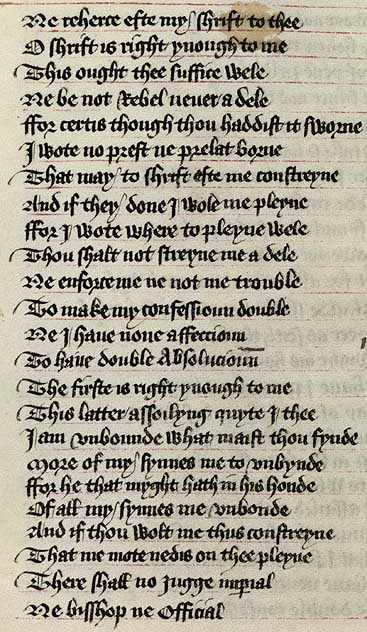 Ne reherce efte my shrift to thee
O shrift is right ynough to me
This ought thee suffice wele
Ne be not Rebel neuer a dele
ffor certis though thou haddist it sworne
I wote no prest ne prelat borne
That may to shrift efte me constreyne
And if they done I wole me pleyne
ffor I wote where to pleyne wele
Thou shalt not streyne me a dele
Ne enforce me ne not me trouble
To make my confessioun double
Ne I haue none affeccioun
To haue double Absolucioun
The firste is right ynough to me
This latter assoilyng quyte I thee
I am vnbounde what maist thou fynde
More of my synnes me to vnbynde
ffor he that myght hath in his honde
Of all my synnes me vnbonde
And if thou wolt me thus constreyne
That me mote nedis on thee pleyne
There shall no Jugge imperial
Ne bisshop ne Official